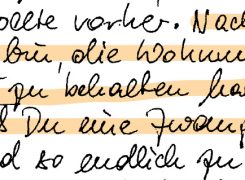 ollte vorher. Nac
bin, die Wohnu
zu behalten ha
s Du eine Zwang
d so endlich zu